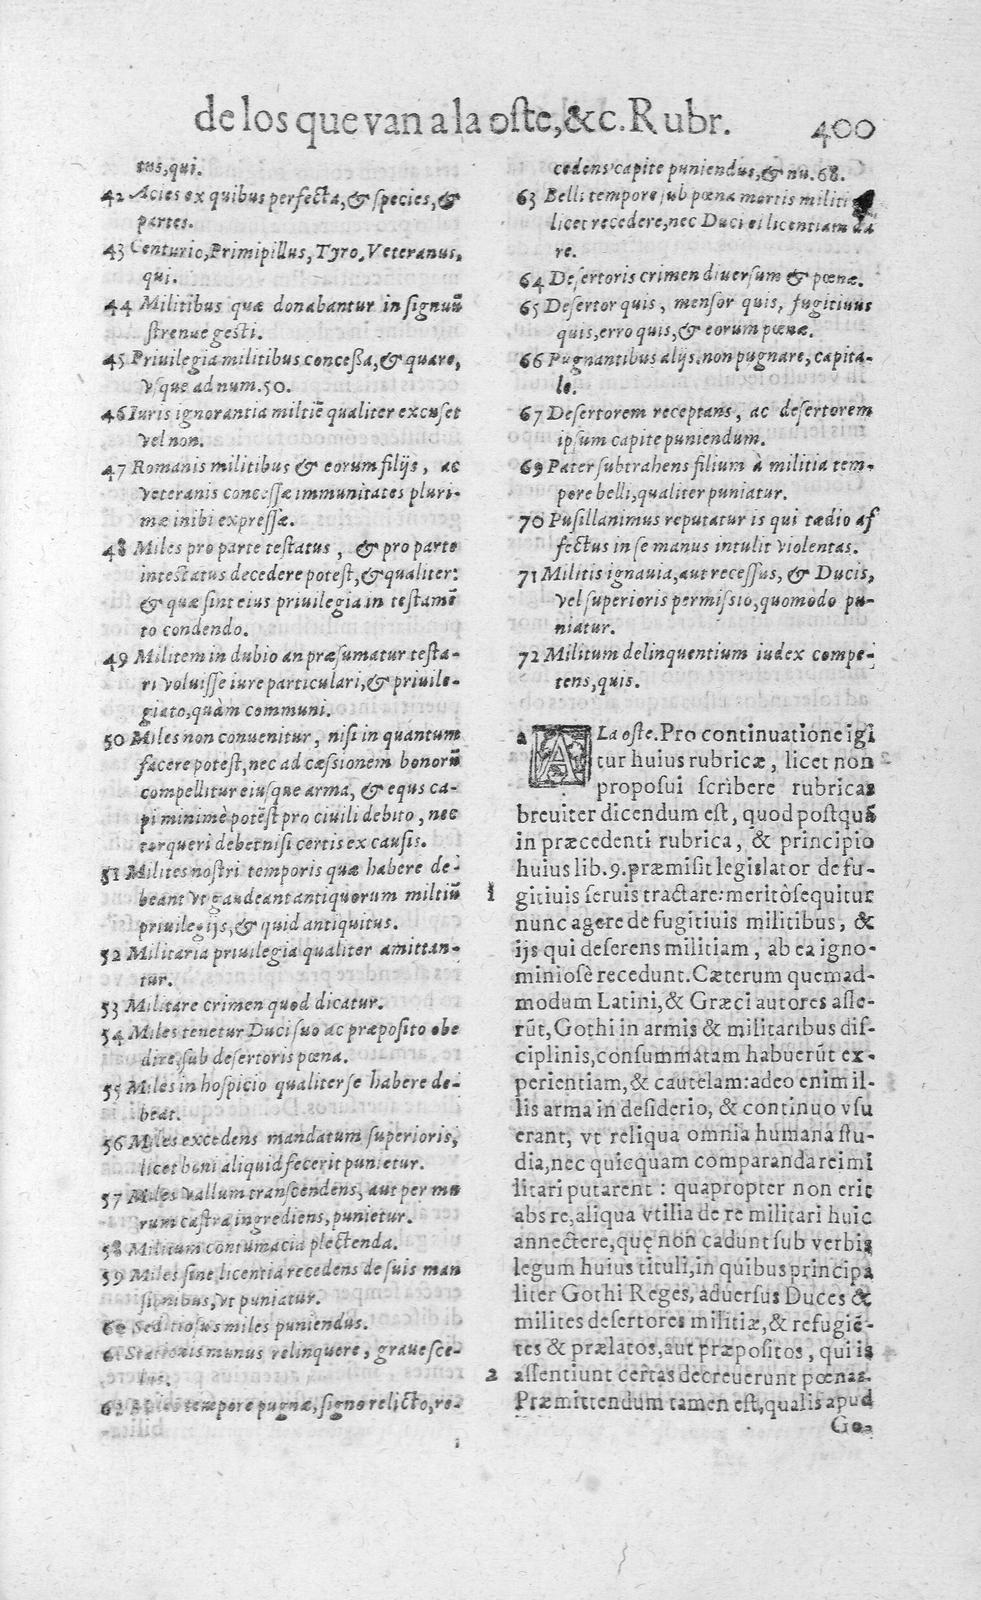 de los que van a la oste, &c. Rubr. 400
tus, qui.
42 Acies ex quibus perfecta, & species, &
partes.
43 Centurio, Primipillus, Tyro, Veteranus,
qui.
44 Militibus quæ donabantur in signuũ
strenue gesti.
45 Privilegia militibus concessa, & quare,
vsque ad num. 50.
46 Iuris ignorantia miltiẽ qualiter excuset
vel non.
47 Romanis militibus & eorum filijs, ac
veteranis concessæ immunitates pluri-
mæ inibi expressæ.
48 Miles pro parte testatus, & pro parte
intestatus decedere potest, & qualiter:
& quæ sint eius privilegia in testamẽ
to condendo.
49 Militem in dubio an præsumatur testa-
ri voluisse iure particulari, & privile-
giato, quàm communi.
50 Miles non convenitur, nisi in quantum
facere potest, nec ad cæssionem bonorũ
compellitur eiusque arma, & equs ca-
pi minimè potẽst pro civili debito, nec
torqueri debet nisi certis ex causis.
51 Milites nostri temporis quæ habere de-
beant vt gaudeant antiquorum miltiũ
privilegijs, & quid antiquitus.
52 Militaria privilegia qualiter amittan-
tur.
53 Militare crimen quod dicatur.
54 Miles tenetur Duci suo ac præposito obe
dire, sub desertoris pœna.
55 Miles in hospicio qualiter se habere de-
beat.
56 Miles excedens mandatum superioris,
licet boni aliquid fecerit punietur.
57 Miles vallum transcendens, aut per mu
rum castra ingrediens, punietur.
58 Militum contumacia plectenda.
59 Miles sine licentia recedens de suis man
sionibus, vt puniatur.
60 Seditiosus miles puniendus.
61 Stationis munus relinquere, grave sce-
lus.
62 Miles tempore pugnæ, signo relicto, re-
cedens capite puniendus, & nu. 68.
63 Belli tempore sub pœna mortis militi
licet recedere, nec Duci ei licentiam da
re.
64 Desertoris crimen diversum & pœnæ.
65 Desertor quis, mensor quis, fugitivus
quis, erro quis, & eorum pœnæ.
66 Pugnantibus alijs, non pugnare, capita-
le.
67 Desertorem receptans, ac desertorem
ipsum capite puniendum.
69 Pater subtrahens filium à militia tem-
pore belli, qualiter puniatur.
70 Pusillanimus reputatur is qui tædio af
fectus in se manus intulit violentas.
71 Militis ignavia, aut recessus, & Ducis,
vel superioris permissio, quomodo pu-
niatur.
72 Militum delinquentium iudex compe-
tens, quis.
a A La oste. Pro continuatione igi
tur huius rubricæ, licet non
proposui scribere rubricas
breuiter dicendum est, quod postquã
in præcedenti rubrica, & principio
huius lib. 9. præmisit legislator de fu-
1 gitiuis seruis tractare: meritò sequitur
nunc agere de fugitiuis militibus, &
ijs qui deserens militiam, ab ea igno-
miniosè recedunt. Cæterum quemad-
modum Latini, & Græci autores asse-
rũt, Gothi in armis & militaribus dis-
ciplinis, consummatam habuerũt ex-
perientiam, & cautelam: adeo enim il-
lis arma in desiderio, & continuo vsu
erant, vt reliqua omnia humana stu-
dia, nec quicquam comparanda rei mi
litari putarent : quapropter non erit
abs re, aliqua vtilia de re militari huic
annectere, quę non cadunt sub verbis
legum huius tituli, in quibus principa
liter Gothi Reges, aduersus Duces &
milites desertores militiæ, & refugiẽ-
tes & prælatos, aut præpositos, qui is
2 assentiunt certas decreuerunt pœnas.
Præmittendum tamen est, qualis apud
Go-